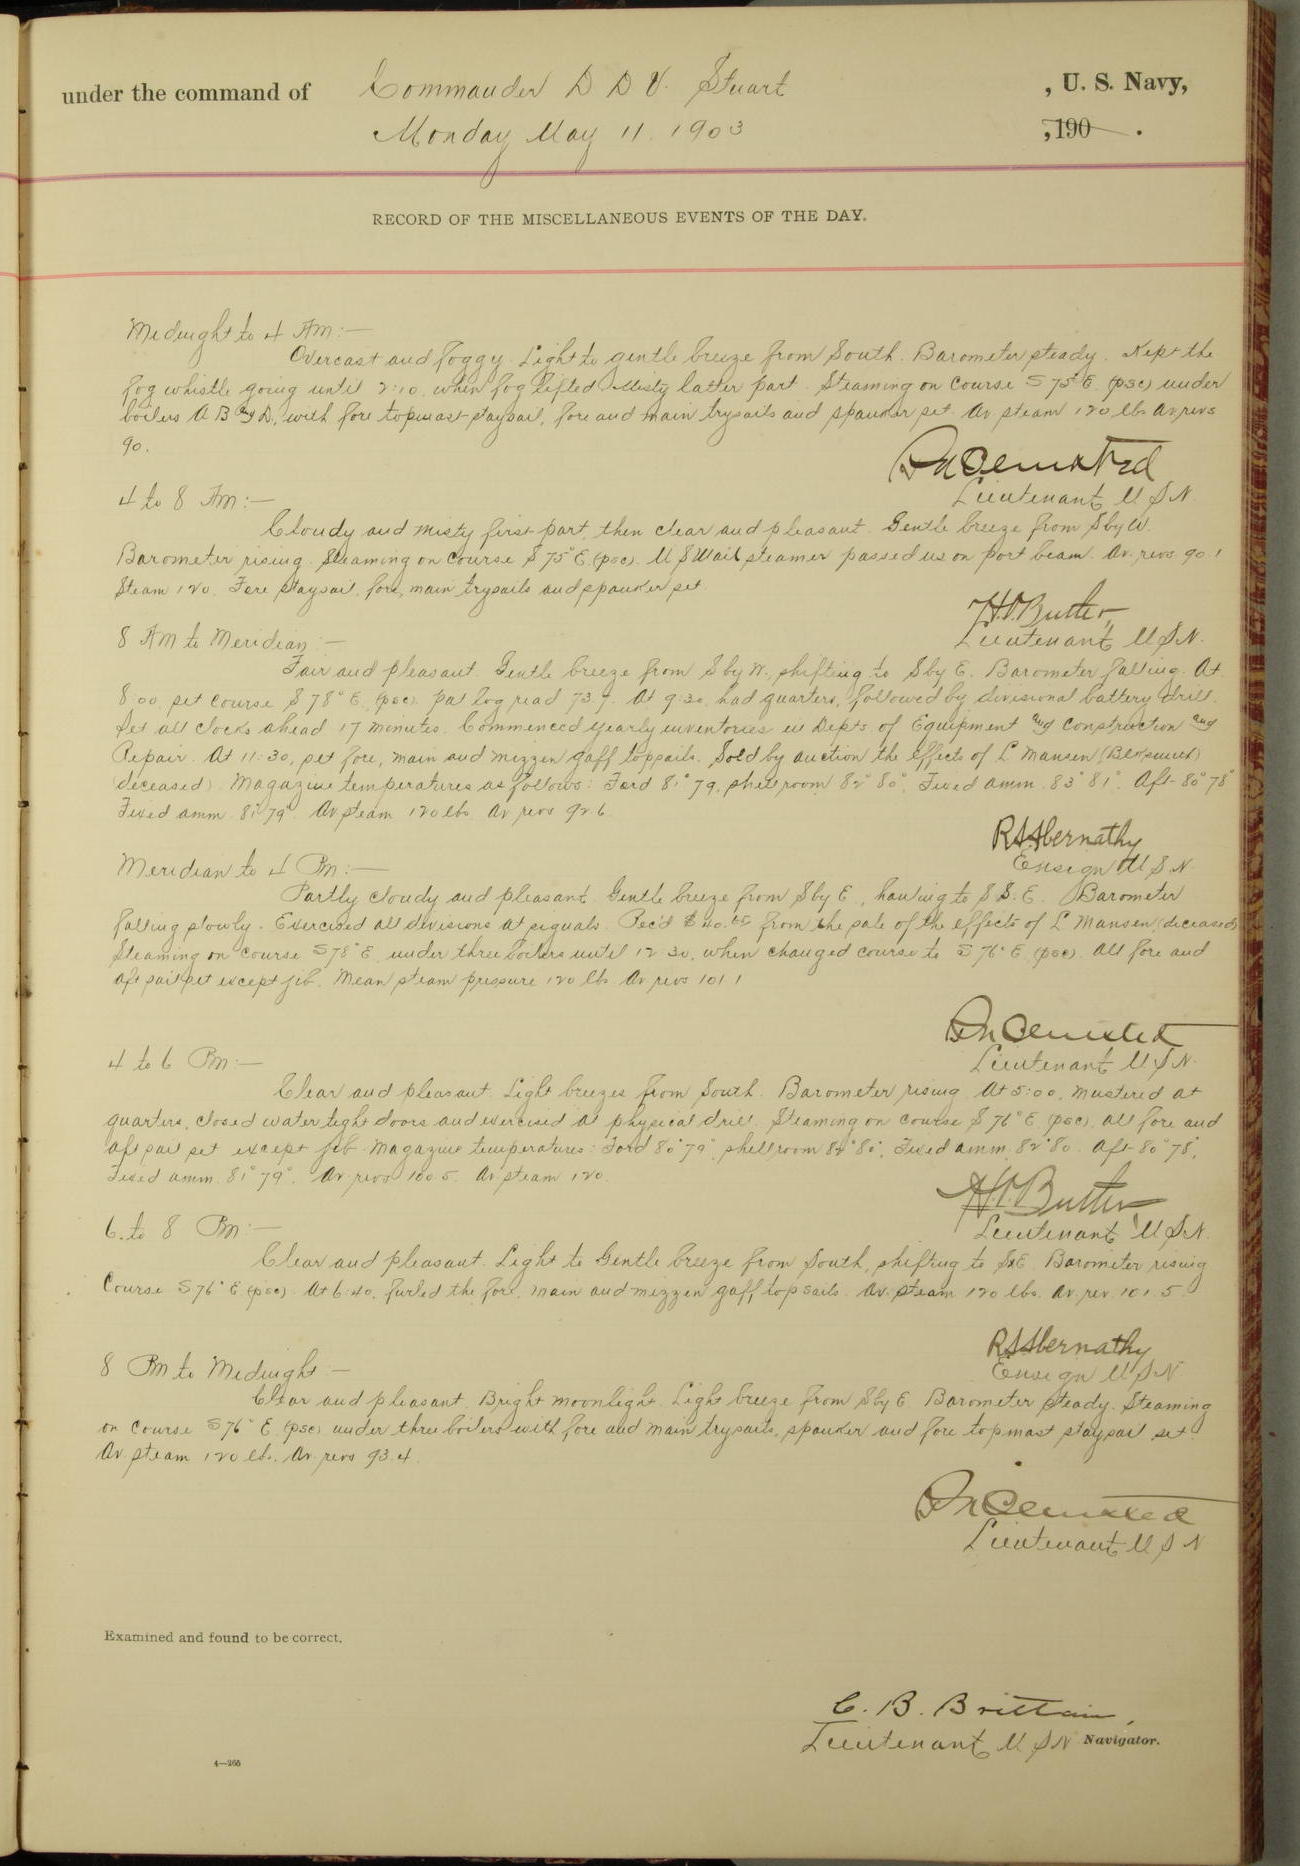 under the command of Commander D D V. Stuart, U. S. Navy,
Monday May 11. 1903 , 190 .
RECORD OF THE MISCELLANEOUS EVENTS OF THE DAY.
Midnight to 4 AM:—
Overcast and foggy. Light to gentle breeze from South. Barometer steady. Kept the
fog whistle going until 2:10, when fog lifted. Misty latter part. Steaming on course S 75° E. (psc) under
boilers A B and D, with fore topmast staysail, fore and main trysails and spanker set. Av steam 120 lbs Av revs
90.
Lieutenant, U S N.
4 to 8 AM:—
Cloudy and misty first part, then clear and pleasant. Gentle breeze from S by W.
Barometer rising. Steaming on course S 75° E. (psc). U S Mail steamer passed us on port beam. Av. revs. 90.1
Steam 120. Fore staysail, fore, main trysails and spanker set.
H. Butler,
Lieutenant U S N.
8 AM to Meridian:—
Fair and pleasant. Gentle breeze from S by W., shifting to S by E. Barometer falling. At
8:00 set course S 78° E. (psc). Pat log read 73.7. At 9:30, had quarters, followed by divisional battery drill.
Set all clocks ahead 17 minutes. Commenced yearly inventories in Depts. of Equipment and Construction and
Repair. At 11:30, set fore, main and mizzen gaff topsails. Sold by auction the effects of L Mansen (Blksmith)
(deceased). Magazine temperatures as follows: Ford 81° 79, shell room 82° 80°, Fixed amm. 83° 81°. Aft 80° 78°
Fixed amm. 81° 79°. Av steam 120 lbs. Av revs 92.6.
R S Abernathy
Ensign U S N.
Meridian to 4 PM:—
Partly cloudy and pleasant. Gentle breeze from S by E., hauling to S S. E. Barometer
falling slowly. Exercised all divisions at signals. Rec'd $ 40. from the sale of the effects of L Mansen (deceased)
Steaming on course S 78° E. under three boilers until 12:30, when changed course to S 76° E. (psc). All fore and
aft sail set except jib. Mean steam pressure 120 lbs. Av revs 101.1
Lieutenant U S N.
4 to 6 PM:—
Clear and pleasant. Light breezes from South. Barometer rising. At 5:00, mustered at
quarters, closed water tight doors and exercised at physical drill. Steaming on course S 76° E. (psc). All fore and
aft sail set except jib. Magazine temperatures: Ford 80° 79°, shell room 82° 80°, Fixed amm. 82° 80. Aft 80° 78°,
Fixed amm. 81° 79°. Av. revs 100.5. Av steam 120.
H. Butler
Lieutenant U S N.
6 to 8 PM:—
Clear and pleasant. Light to Gentle breeze from South, shifting to Barometer rising
Course S 76° E (psc). At 6:40, furled the fore, main and mizzen gaff topsails. Av. steam 120 lbs. Av. rev. 101.5.
R S Abernathy
Ensign U S N
8 PM to Midnight—
Clear and pleasant. Bright moonlight. Light breeze from S by E. Barometer steady. Steaming
on course S 76° E. (psc) under three boilers with fore and main trysails, spanker and fore topmast staysail set.
Av. steam 120 lbs. Av. revs 93.4.
Lieutenant U S N
Examined and found to be correct.
C. B. Brittain,
Lieutenant U S N Navigator.
4—265